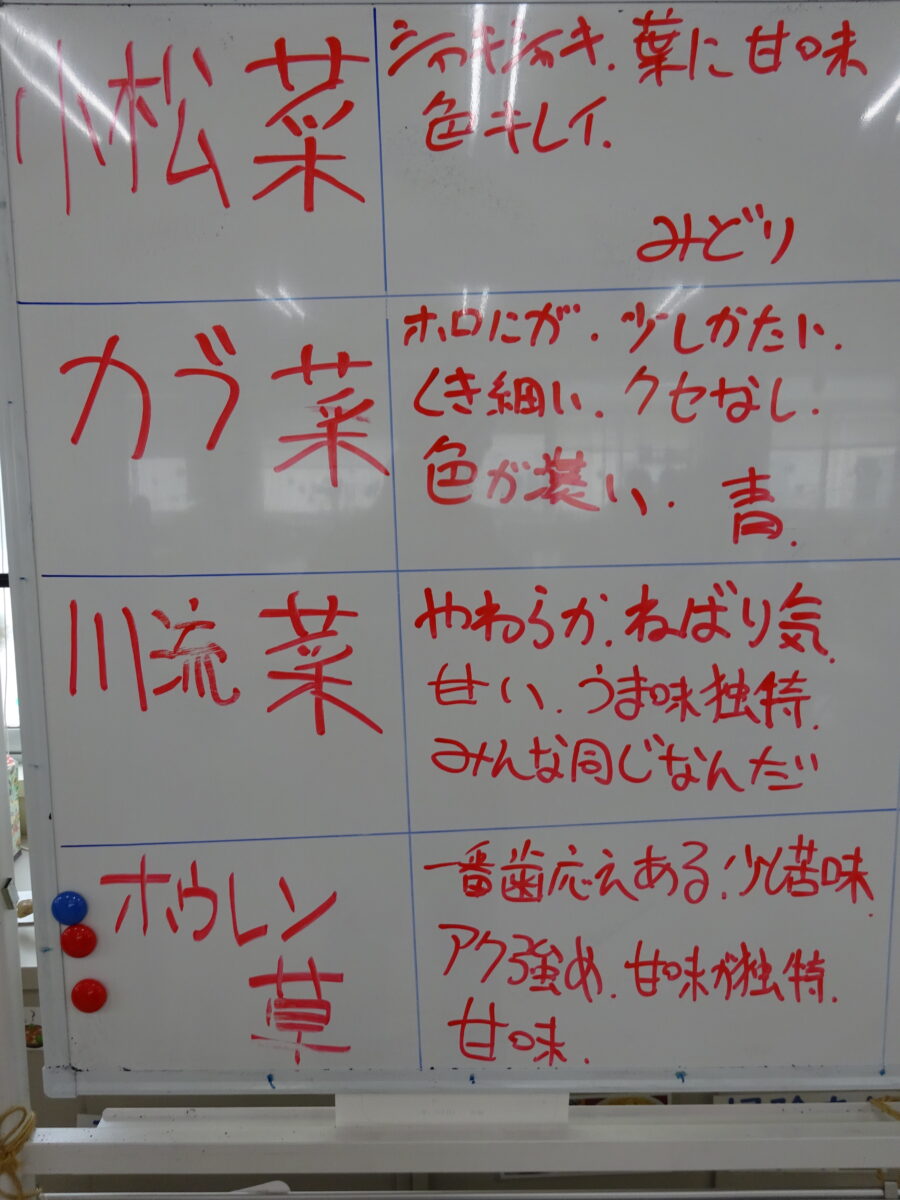 小松菜
シャキシャキ. 葉に甘味
色キレイ.
みどり
カブ菜
ホロにが. 少しかたい.
くき細い. クセなし.
色が い.
青.
川流菜
やわらか. ねばり気.
甘い. うま味独特.
みんな同じなんだ
ホウレン
草
一番歯応えある. 少し苦味.
アク強め. 甘味が独特.
甘味.